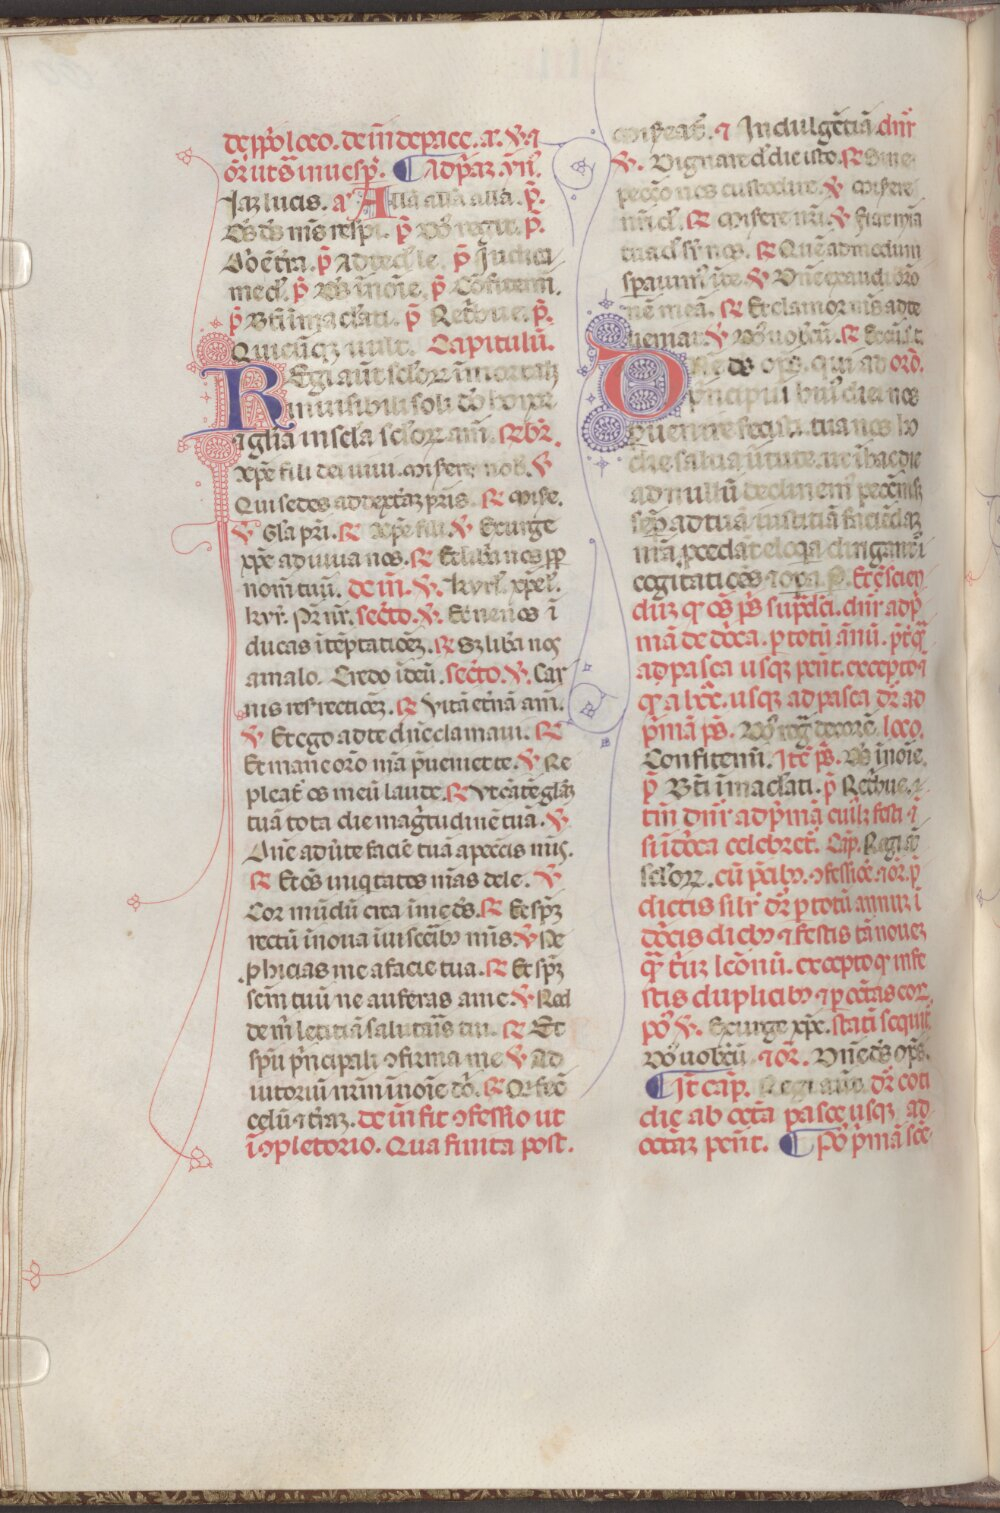 de ꝓprio loco. deīn de pace. a. ℣. ⁊
or̄ ut s̄ in uesp̄. ¶ Ad p̄ꝫ az. ym̄.
Iaz lucis. a Alla alla alla. p̄.
Ds̄ ds̄ ms̄ respi. p̄ Dn̄s regit. p̄.
Dn̄i est tr̄a. p̄ Ad te dn̄e le. p̄ Iudica
me d. p̄ Ds̄ ī noīe. p̄ Cōfitemī.
p̄ Bt̄i īmaclati. p̄ Retͥbue. p̄.
Quicūqꝫ uult. Capitulū.
REgi aūt sclorꝝ īmortali
inuisibili soli dō honor
⁊ glīa in scl̄a sclorꝝ am̄. ℟ br̄.
xp̄e fili dei uiui. miserere nob̄. ℣
Qui sedes ad dexterā pr̄is. ℟ mise.
℣ Gl̄a pr̄i. ℟ Xp̄e fili. ℣ Exurge
xp̄e adiuua nos. ℟ Et libera nos ꝓp
nom̄ tuū. deīn. ℣. kyrł. xp̄eł.
kyr̄. Pr̄ nr̄. secͤto. ℣. Et ne nos ī
ducas ī tēptationeꝫ. ℟ Sz liba nos
a malo. Credo ī deū. secͤto. ℣. Car
nis resr̄ectionēꝫ. ℟ Vitā et̄nā am̄.
℣ Et ego ad te dn̄e clamaui. ℟
Et mane orō mīa p̄ueniet te. ℣ Re
pleat̄ os meū laude. ℟ Vt cātē glīaꝫ
tuā tota die magͥtudinē tuā. ℣
Dn̄e aduerte faciē tuā a pccīs mīs.
℟ Et oēs iniqͥtates mēas dele. ℣
Cor mūdū crea ī me ds̄. ℟ Et sp̄ꝫ
rectū īnoua ī uiscīb mīs. ℣ Ne
ꝓhicias me a facie tua. ℟ Et sp̄ꝫ
scm̄ tuū ne auferas a me. ℣ Red
de m̄ letitiā salutaīs tui. ℟ Et
sp̄u pͥncipali ꝯfirma me ℣ Ad
iutoriū nr̄m ī noīe dn̄i. ℟ Qͥ fec̄
celū ⁊ tr̄aꝫ. deīn fit ꝯfessio ut
ī ꝯpletorio. Qua finita post.
misereat̄. ⁊ Indulgētiā. dr̄
℣. Dignare dn̄e die isto. ℟ Sine
peccō nos custodire. ℣ misere
nr̄i d. ℟ misere nr̄i. ℣ Fiat mīa
tua dn̄e sr̄ nos. ℟ Quēadmodum
sꝑauim̄ ī te. ℣ Dn̄e exaudi orō
nē meā. ℟ Et clamor m̄s ad te
ueniat. ℣ Dn̄s uobcū. ℟ Et cū s. t.
DNe ds̄ op̄s. qui ad oro.
pͥncipiū huī diei nos
ꝑuenire fecisti. tua nos ho
die salua uͥtute. ut ī hac die
ad nullū declinem̄ peccm̄
sep̄ ad tuā iustitiā faciēdaꝫ
nr̄a ꝓcedāt eloqͥa. dirigant̄
cogitationes ⁊ opa. P. Et ē scien
dūꝫ qͩ oēs ps̄ sup̄dci. dn̄r ad pͥ
mā de dn̄ca. p totū ānū. p̄t qͣ
a pasca usqꝫ pent̄. excepto
qͩ a lxx̄. usqꝫ ad pasca dr̄ ad
pͥmā ps̄. Dn̄s reg̃ decorē. loco.
Confitemī. Itē ps̄. Ds̄ ī noīe.
p̄ Bt̄i īmaclati. p̄ Retͥbue.
tn̄ dn̄r ad pͥmā cuīlꝫ festi ⁊
si ī dn̄ca celebret̄. Cap̄. Regi aū
sclorꝝ. cū pcibꝫ. ꝯfessiōe. ⁊ or̄. p̄
dictis silr̄ dr̄ p totū annuꝫ ī
dn̄cis dieb ⁊ festis tā nouez
qͣ triuꝫ leōnū. excepto qͩ in fe
stis duplicib ⁊ p octas eorꝝ.
pō ℣. Exurge xp̄e. statī sequit̄
Dn̄s uobcū. ⁊ or̄. Dn̄e ds̄ op̄s.
¶ It̄ cap̄. Regi aūt. dr̄ coti
die ab octa pasce usqꝫ ad
octaꝫ pent̄. ¶ Pō pͥmā scē